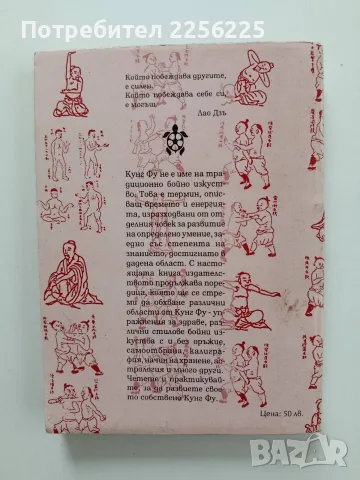 2256215
Който побеждава другите,
е силен.
Който побеждава себе си,
е могъщ.
Лао Дзъ
Кунг Фу не е име на тра-
диционно бойно изкуст-
во. Това е термин, опис-
ващ времето и енергия-
та, изразходвани от от-
делния човек за развитие
на определено умение, за-
едно със степента на
знанието, достигнато в
дадена област. С насто-
ящата книга издателс-
твото продължава поре-
дица, която ще се стре-
ми да обхване различни
области от Кунг Фу - уп-
ражнения за здраве, раз-
лични стилове бойни из-
куства с и без оръжие,
самоотбрана, калигра-
фия, начин на хранене, ас-
трология и много други.
Четете и практикувай-
те, за да развиете свое-
то собствено Кунг Фу.
Цена: 50 лв.
BAZAR
bg